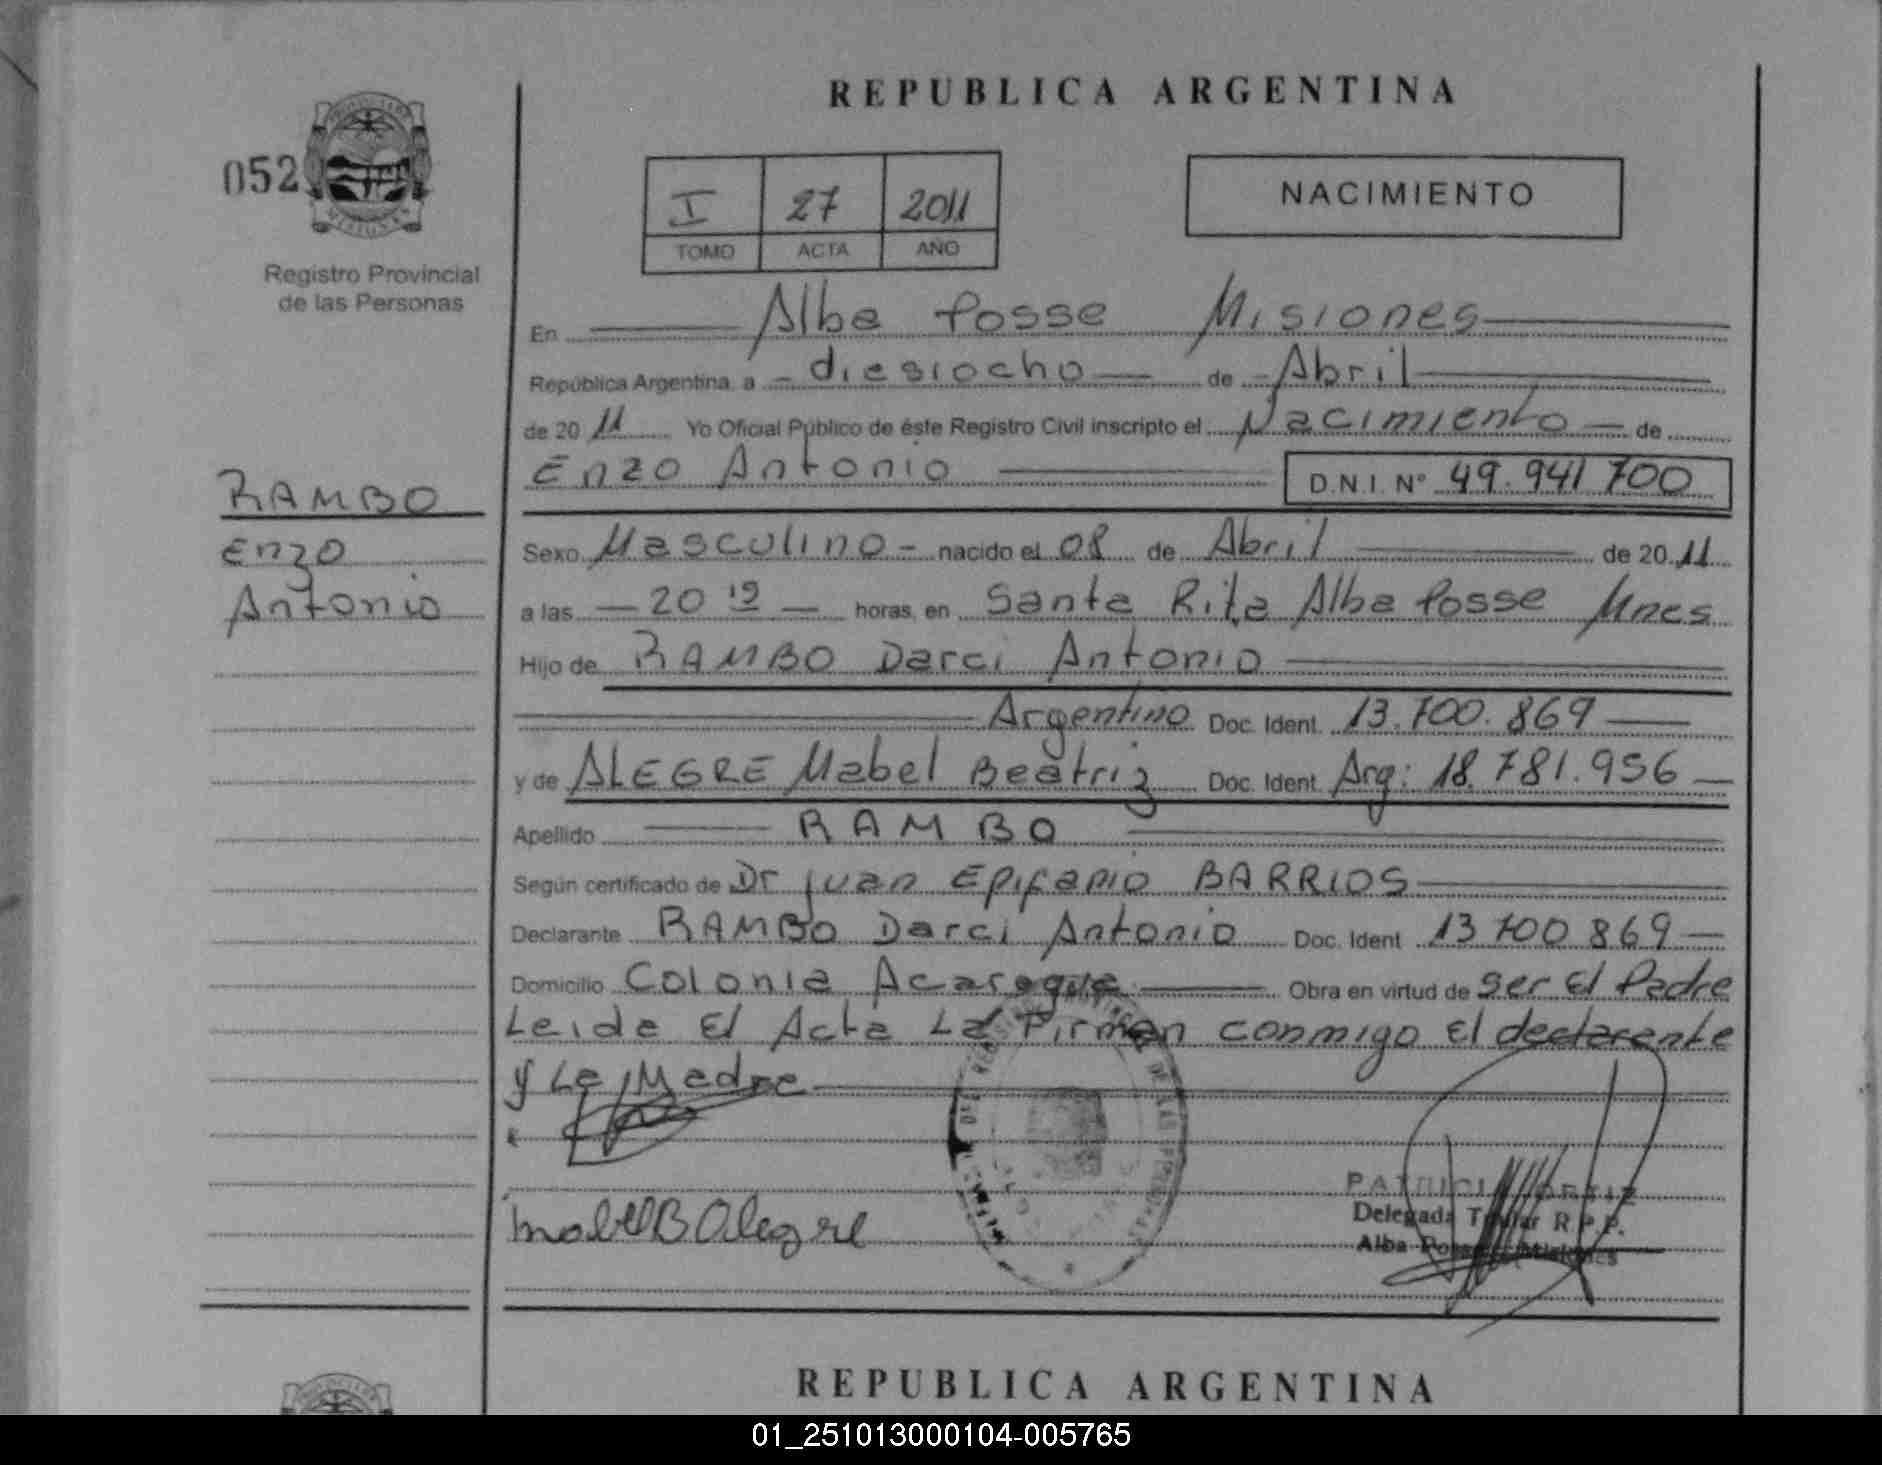 REPUBLICA ARGENTINA
052
Registro Provincial
de las Personas
I 27 2011
TOMO ACTA AÑO
NACIMIENTO
En Alba Posse Misiones
República Argentina, a diesiocho de Abril
de 20 11 Yo Oficial Público de éste Registro Civil inscripto el Nacimiento de
Enzo Antonio D.N.I. N° 49.941 700
RAMBO
Enzo
Antonio
Sexo Masculino - nacido el 08 de Abril de 20 11
a las 20 19 horas, en Santa Rita Alba Posse Mnes
Hijo de RAMBO Darci Antonio
Argentino Doc. Ident. 13.700.869
y de ALEGRE Mabel Beatriz Doc. Ident. Arg: 18.781.956
Apellido RAMBO
Según certificado de Dr Juan Epifanio BARRIOS
Declarante RAMBO Darci Antonio Doc. Ident. 13 700 869
Domicilio Colonia Acaragua Obra en virtud de ser El Padre
Leida El Acta La Firman conmigo El declarante
y La Madre
Mabel B Alegre
Delegada Titular R.P.P.
Alba Posse Misiones
REPUBLICA ARGENTINA
01_251013000104-005765